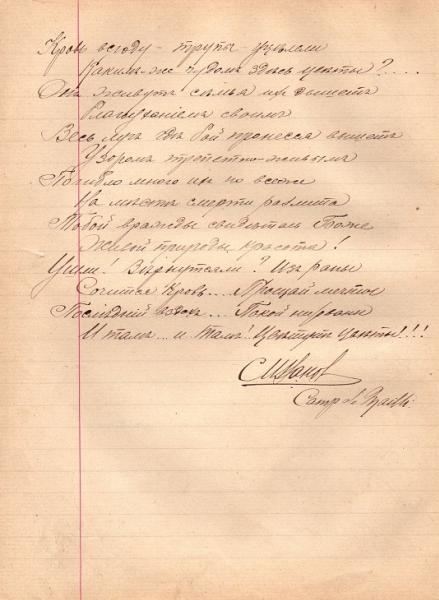 Кровь всюду - трупы - уцѣлели
Какимъ-же чудомъ здѣсь цвѣты?....
Они живутъ семья ихъ дышетъ
Благоуханіемъ своимъ
Весь лугъ онъ Рой процесса вышитъ
Узоромъ трепетно-живымъ
Погибло много их но всеже
На мѣстѣ смерти разлита
Тобой вражды свидѣтель Боже
Живой природы красота!
Ушли! Вернутсяли? Изъ раны
Сочится кровь... Прощай мечты
Послѣдній вздох... Покой нирваны
И тамъ... и тамъ! Цвѣтутъ цвѣты!!!
Camp